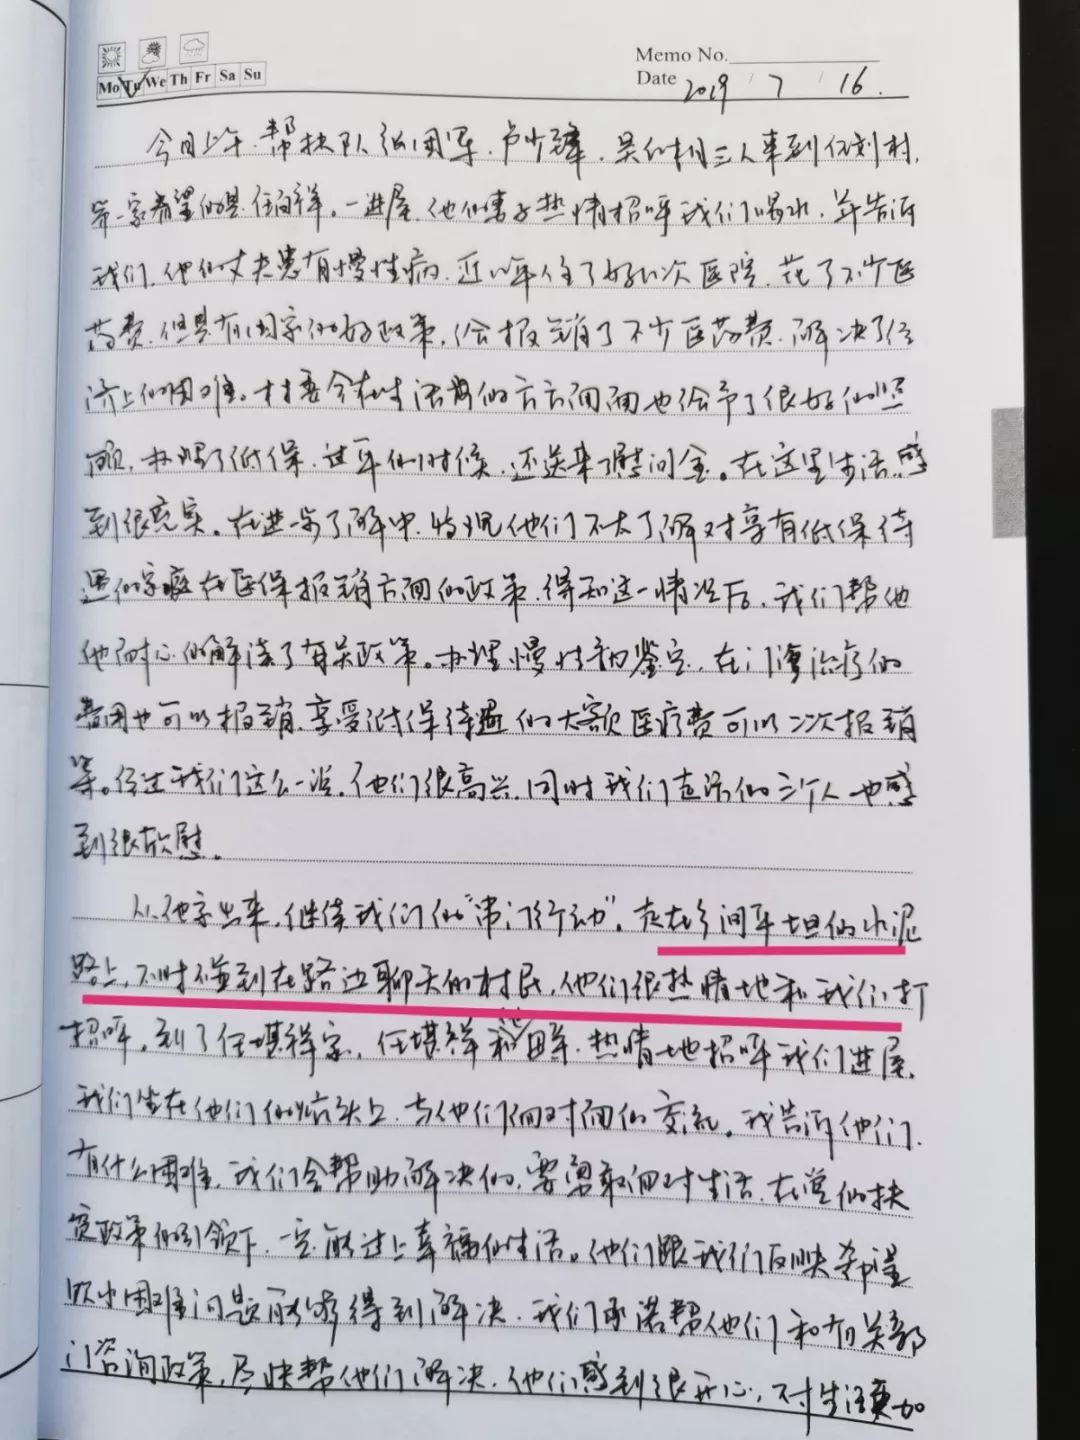 Memo No.
Mo Tu We Th Fr Sa Su
Date 2019 / 7 / 16.
今日上午,帮扶队张国军、卢少锋、吴红相三人来到任刘村,
第一家看望的是任向祥。一进屋,他的妻子热情招呼我们喝水,并告诉
我们,他的丈夫患有慢性病,近几年住了好几次医院,花了不少医
药费,但是有国家的好政策,给报销了不少医药费,解决了经
济上的困难。村委会在生活的方方面面也给予了很好的照
顾,办理了低保,过年的时候,还送来了慰问金。在这里生活,感
到很充实。在进一步了解中,发现他们不太了解对享有低保待
遇的家庭在医保报销方面的政策,得知这一情况后,我们帮他
他耐心的解读了有关政策。办理慢性病鉴定,在门诊治疗的
费用也可以报销,享受低保待遇的大额医疗费可以二次报销
等。经过我们这么一说,他们很高兴,同时我们走访的三个人也感
到很欣慰。
从他家出来,继续我们的“串门行动”。走在乡间平坦的水泥
路上,不时碰到在路边聊天的村民,他们很热情地和我们打
招呼。到了任堪祥家,任堪祥和他田,热情地招呼我们进屋,
我们坐在他们的炕头上,与他们面对面的交流。我告诉他们,
有什么困难,我们会帮助解决的,要勇敢面对生活,在党的扶
贫政策的引领下,一定能过上幸福的生活。他们跟我们反映希望
吃水困难问题能够得到解决,我们承诺帮他们和有关部
门咨询政策,尽快帮他们解决,他们感到很开心,对生活更加